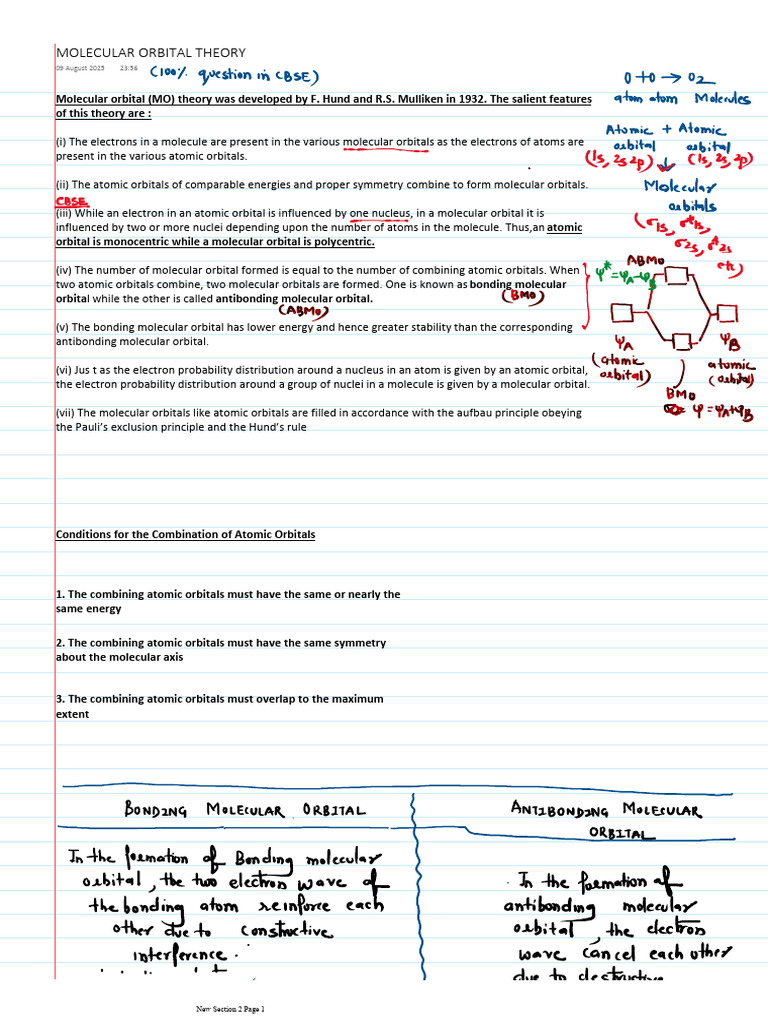 MOLECULAR ORBITAL THEORY
09 August 2025 23:56
(100% question in CBSE)
Molecular orbital (MO) theory was developed by F. Hund and R.S. Mulliken in 1932. The salient features
of this theory are :
(i) The electrons in a molecule are present in the various molecular orbitals as the electrons of atoms are
present in the various atomic orbitals.
(ii) The atomic orbitals of comparable energies and proper symmetry combine to form molecular orbitals.
CBSE
(iii) While an electron in an atomic orbital is influenced by one nucleus, in a molecular orbital it is
influenced by two or more nuclei depending upon the number of atoms in the molecule. Thus,an atomic
orbital is monocentric while a molecular orbital is polycentric.
(iv) The number of molecular orbital formed is equal to the number of combining atomic orbitals. When
two atomic orbitals combine, two molecular orbitals are formed. One is known as bonding molecular
orbital while the other is called antibonding molecular orbital.
(BMO)
(ABMO)
(v) The bonding molecular orbital has lower energy and hence greater stability than the corresponding
antibonding molecular orbital.
(vi) Jus t as the electron probability distribution around a nucleus in an atom is given by an atomic orbital,
the electron probability distribution around a group of nuclei in a molecule is given by a molecular orbital.
(vii) The molecular orbitals like atomic orbitals are filled in accordance with the aufbau principle obeying
the Pauli's exclusion principle and the Hund's rule
O + O → O2
atom atom Molecules
Atomic + Atomic
orbital orbital
(1s, 2s 2p) (1s, 2s, 2p)
Molecular
orbitals
(σ1s, σ*1s,
σ2s, σ*2s
etc)
ABMO
ψ* = ψA-ψB
ψA ψB
(atomic orbital) atomic (orbital)
BMO
ψ = ψA+ψB
Conditions for the Combination of Atomic Orbitals
1. The combining atomic orbitals must have the same or nearly the
same energy
2. The combining atomic orbitals must have the same symmetry
about the molecular axis
3. The combining atomic orbitals must overlap to the maximum
extent
BONDING MOLECULAR ORBITAL
In the formation of Bonding molecular
orbital, the two electron wave of
the bonding atom reinforce each
other due to constructive
interference.
ANTIBONDING MOLECULAR
ORBITAL
In the formation of
antibonding molecular
orbital, the electron
wave cancel each other
due to destructive
New Section 2 Page 1